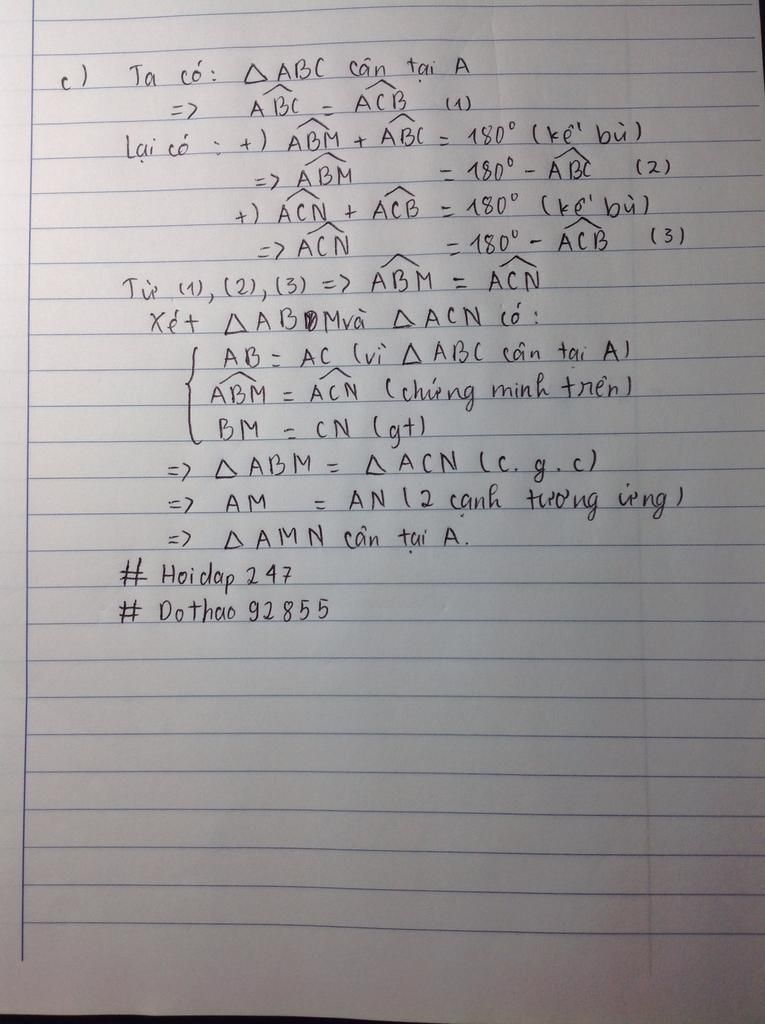 c) Ta có: △ABC cân tại A
=> \widehat{ABC} = \widehat{ACB} (1)
Lại có: +) \widehat{ABM} + \widehat{ABC} = 180° (kề bù)
=> \widehat{ABM} = 180° - \widehat{ABC} (2)
+) \widehat{ACN} + \widehat{ACB} = 180° (kề bù)
=> \widehat{ACN} = 180° - \widehat{ACB} (3)
Từ (1), (2), (3) => \widehat{ABM} = \widehat{ACN}
Xét △ABM và △ACN có:
AB = AC (vì △ABC cân tại A)
\widehat{ABM} = \widehat{ACN} (chứng minh trên)
BM = CN (gt)
=> △ABM = △ACN (c.g.c)
=> AM = AN (2 cạnh tương ứng)
=> △AMN cân tại A.
# Hoidap 247
# Dothao 92855